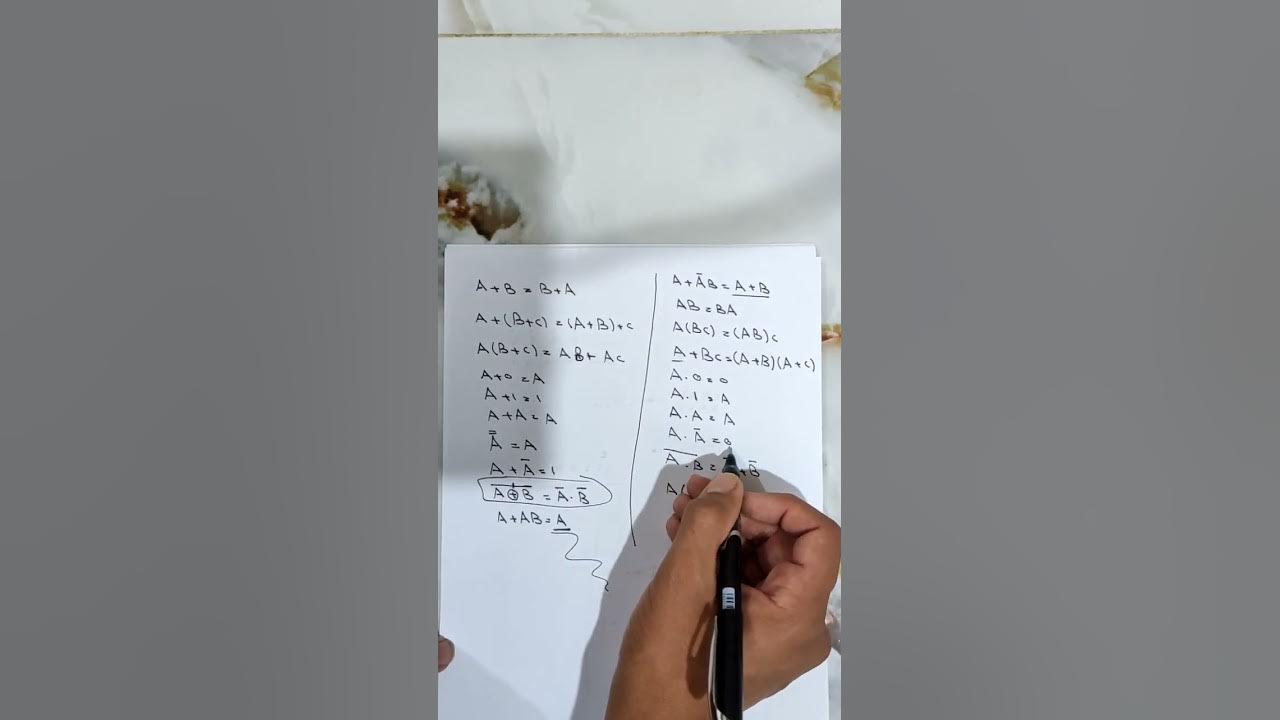 A+B = B+A
A+(B+C) = (A+B)+C
A(B+C) = AB+AC
A+0 = A
A+1 = 1
A+A = A
A̿ = A
A+A̅ = 1
A̅+̅B̅ = A̅·B̅
A+AB = A
A+A̅B = A+B
AB = BA
A(BC) = (AB)C
A+BC = (A+B)(A+C)
A·0 = 0
A·1 = A
A·A = A
A·A̅ = 0
A̅·̅B̅ = +B̅
A(